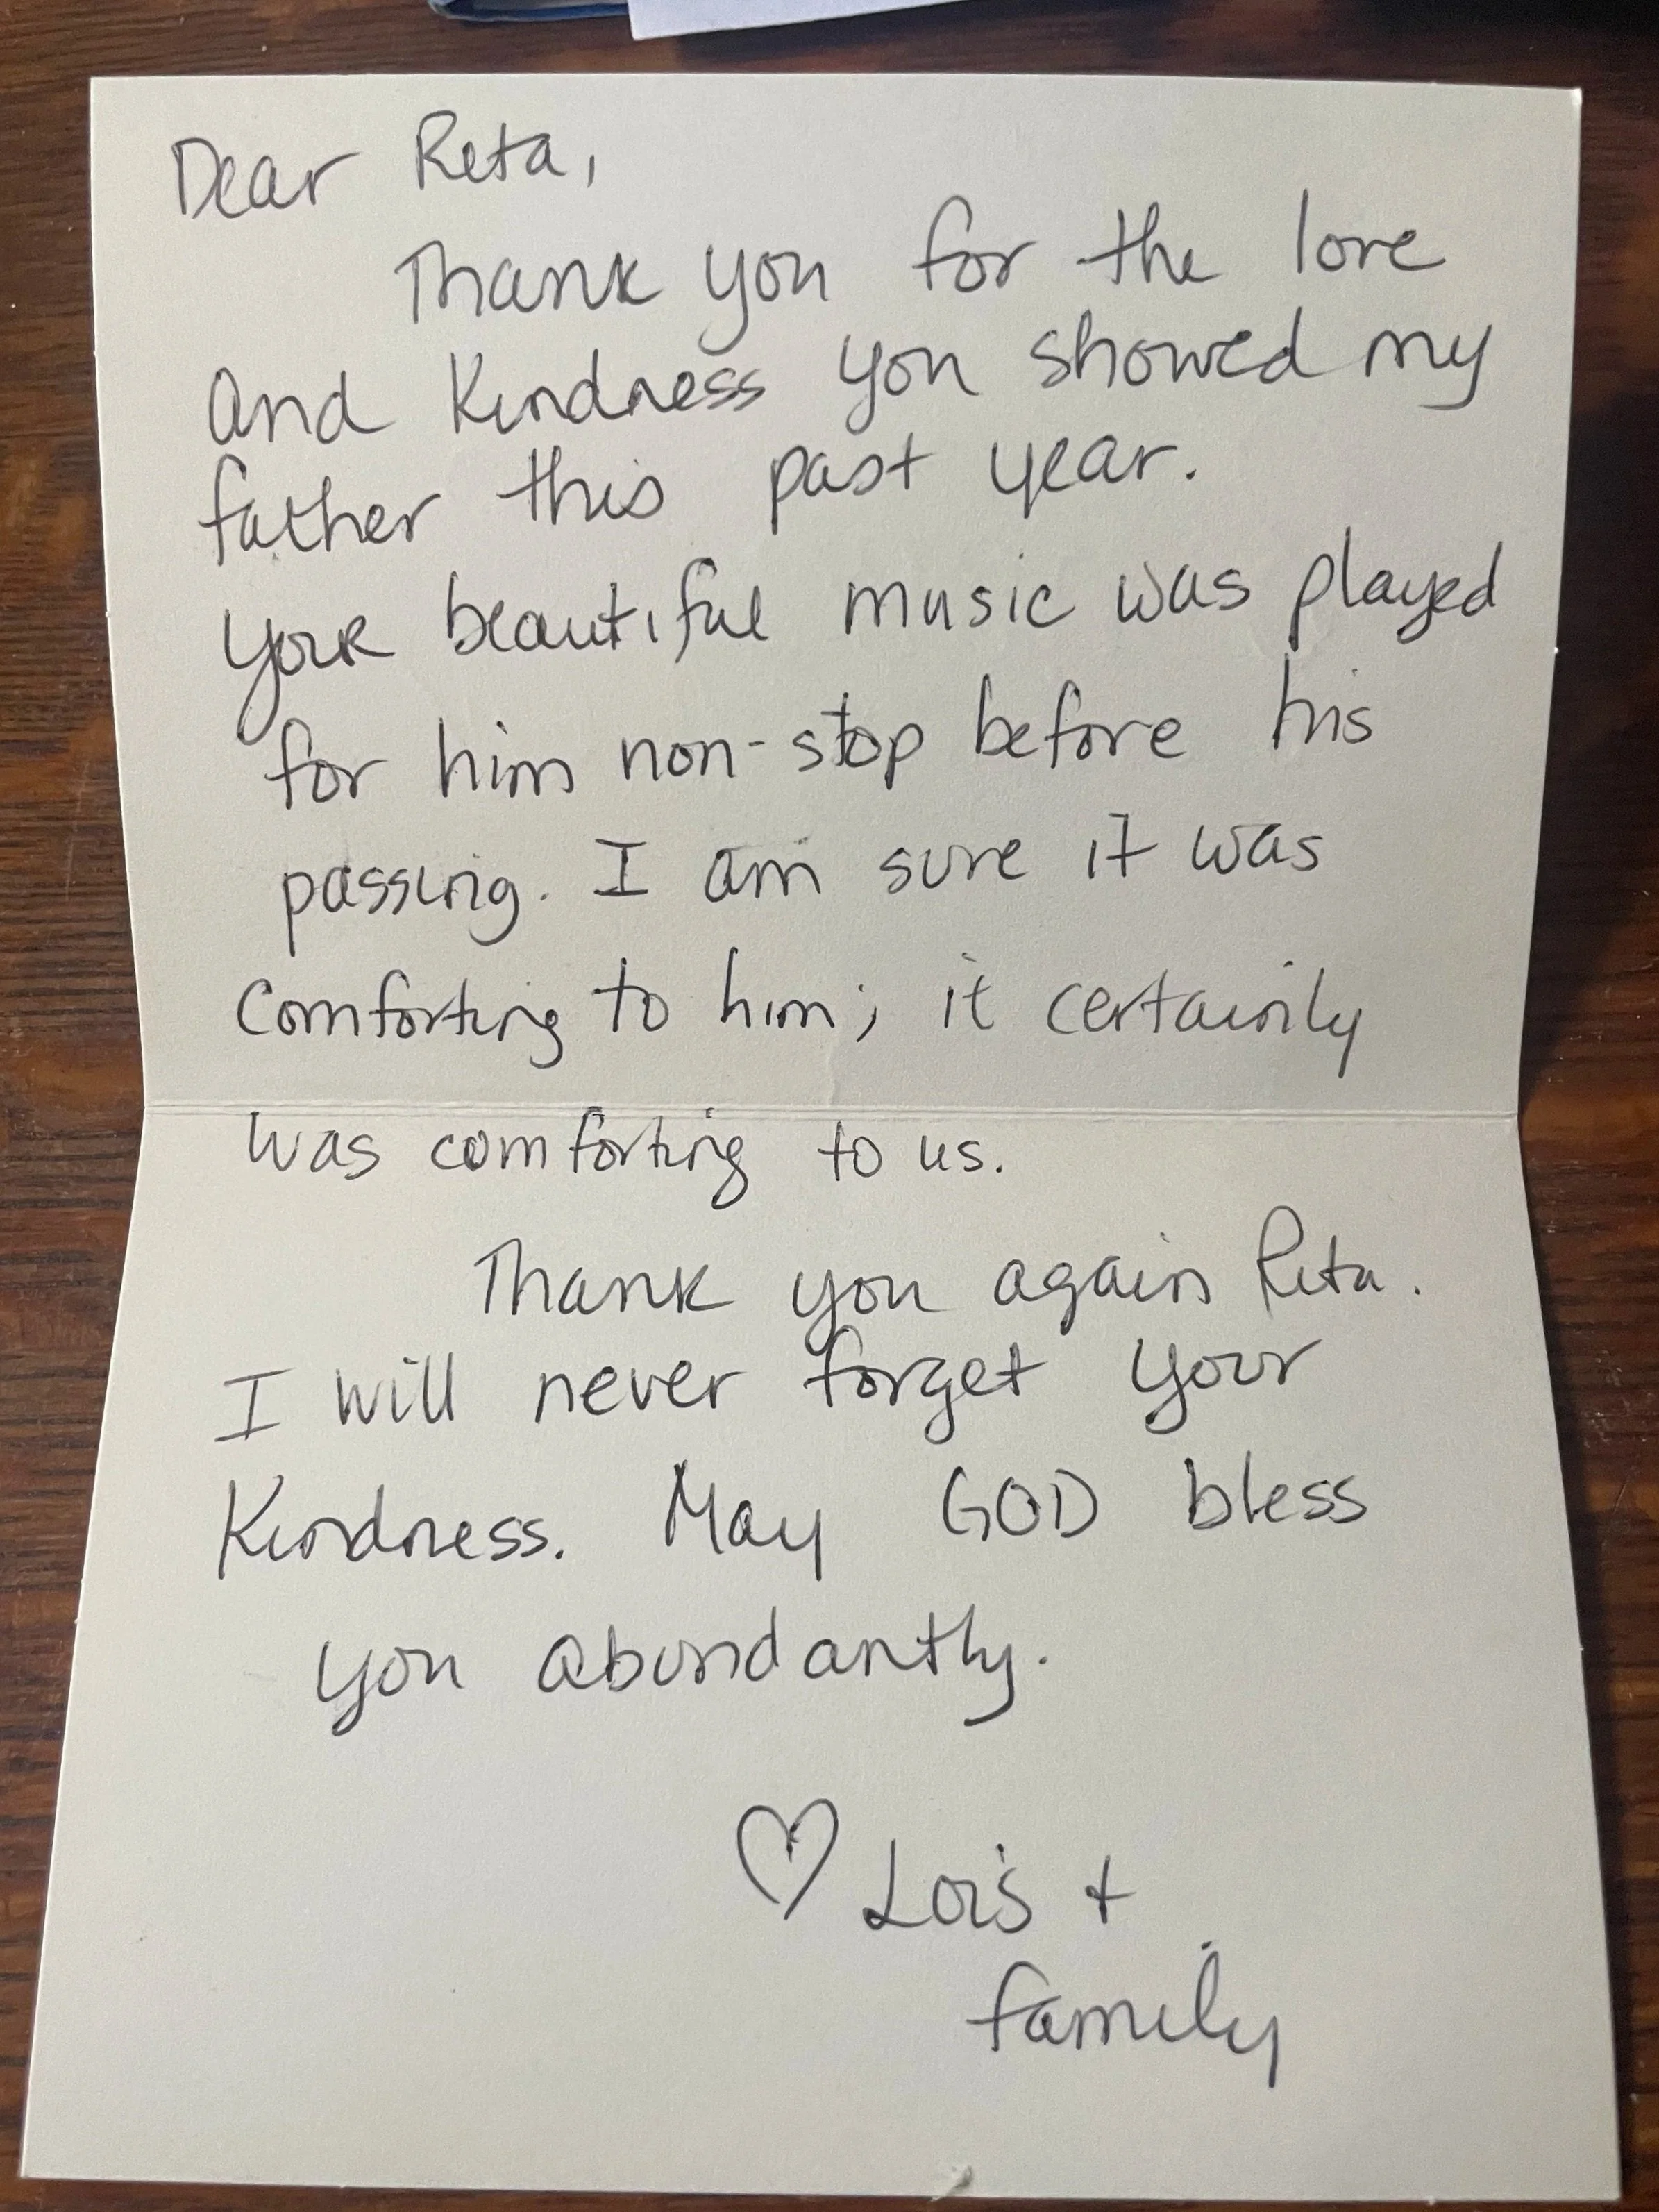 Dear Reta,
Thank you for the love
and Kindness you showed my
father this past year.
Your beautiful music was played
for him non-stop before his
passing. I am sure it was
comforting to him; it certainly
was comforting to us.
Thank you again Reta.
I will never forget your
Kindness. May GOD bless
you abundantly.
♡ Lois +
family